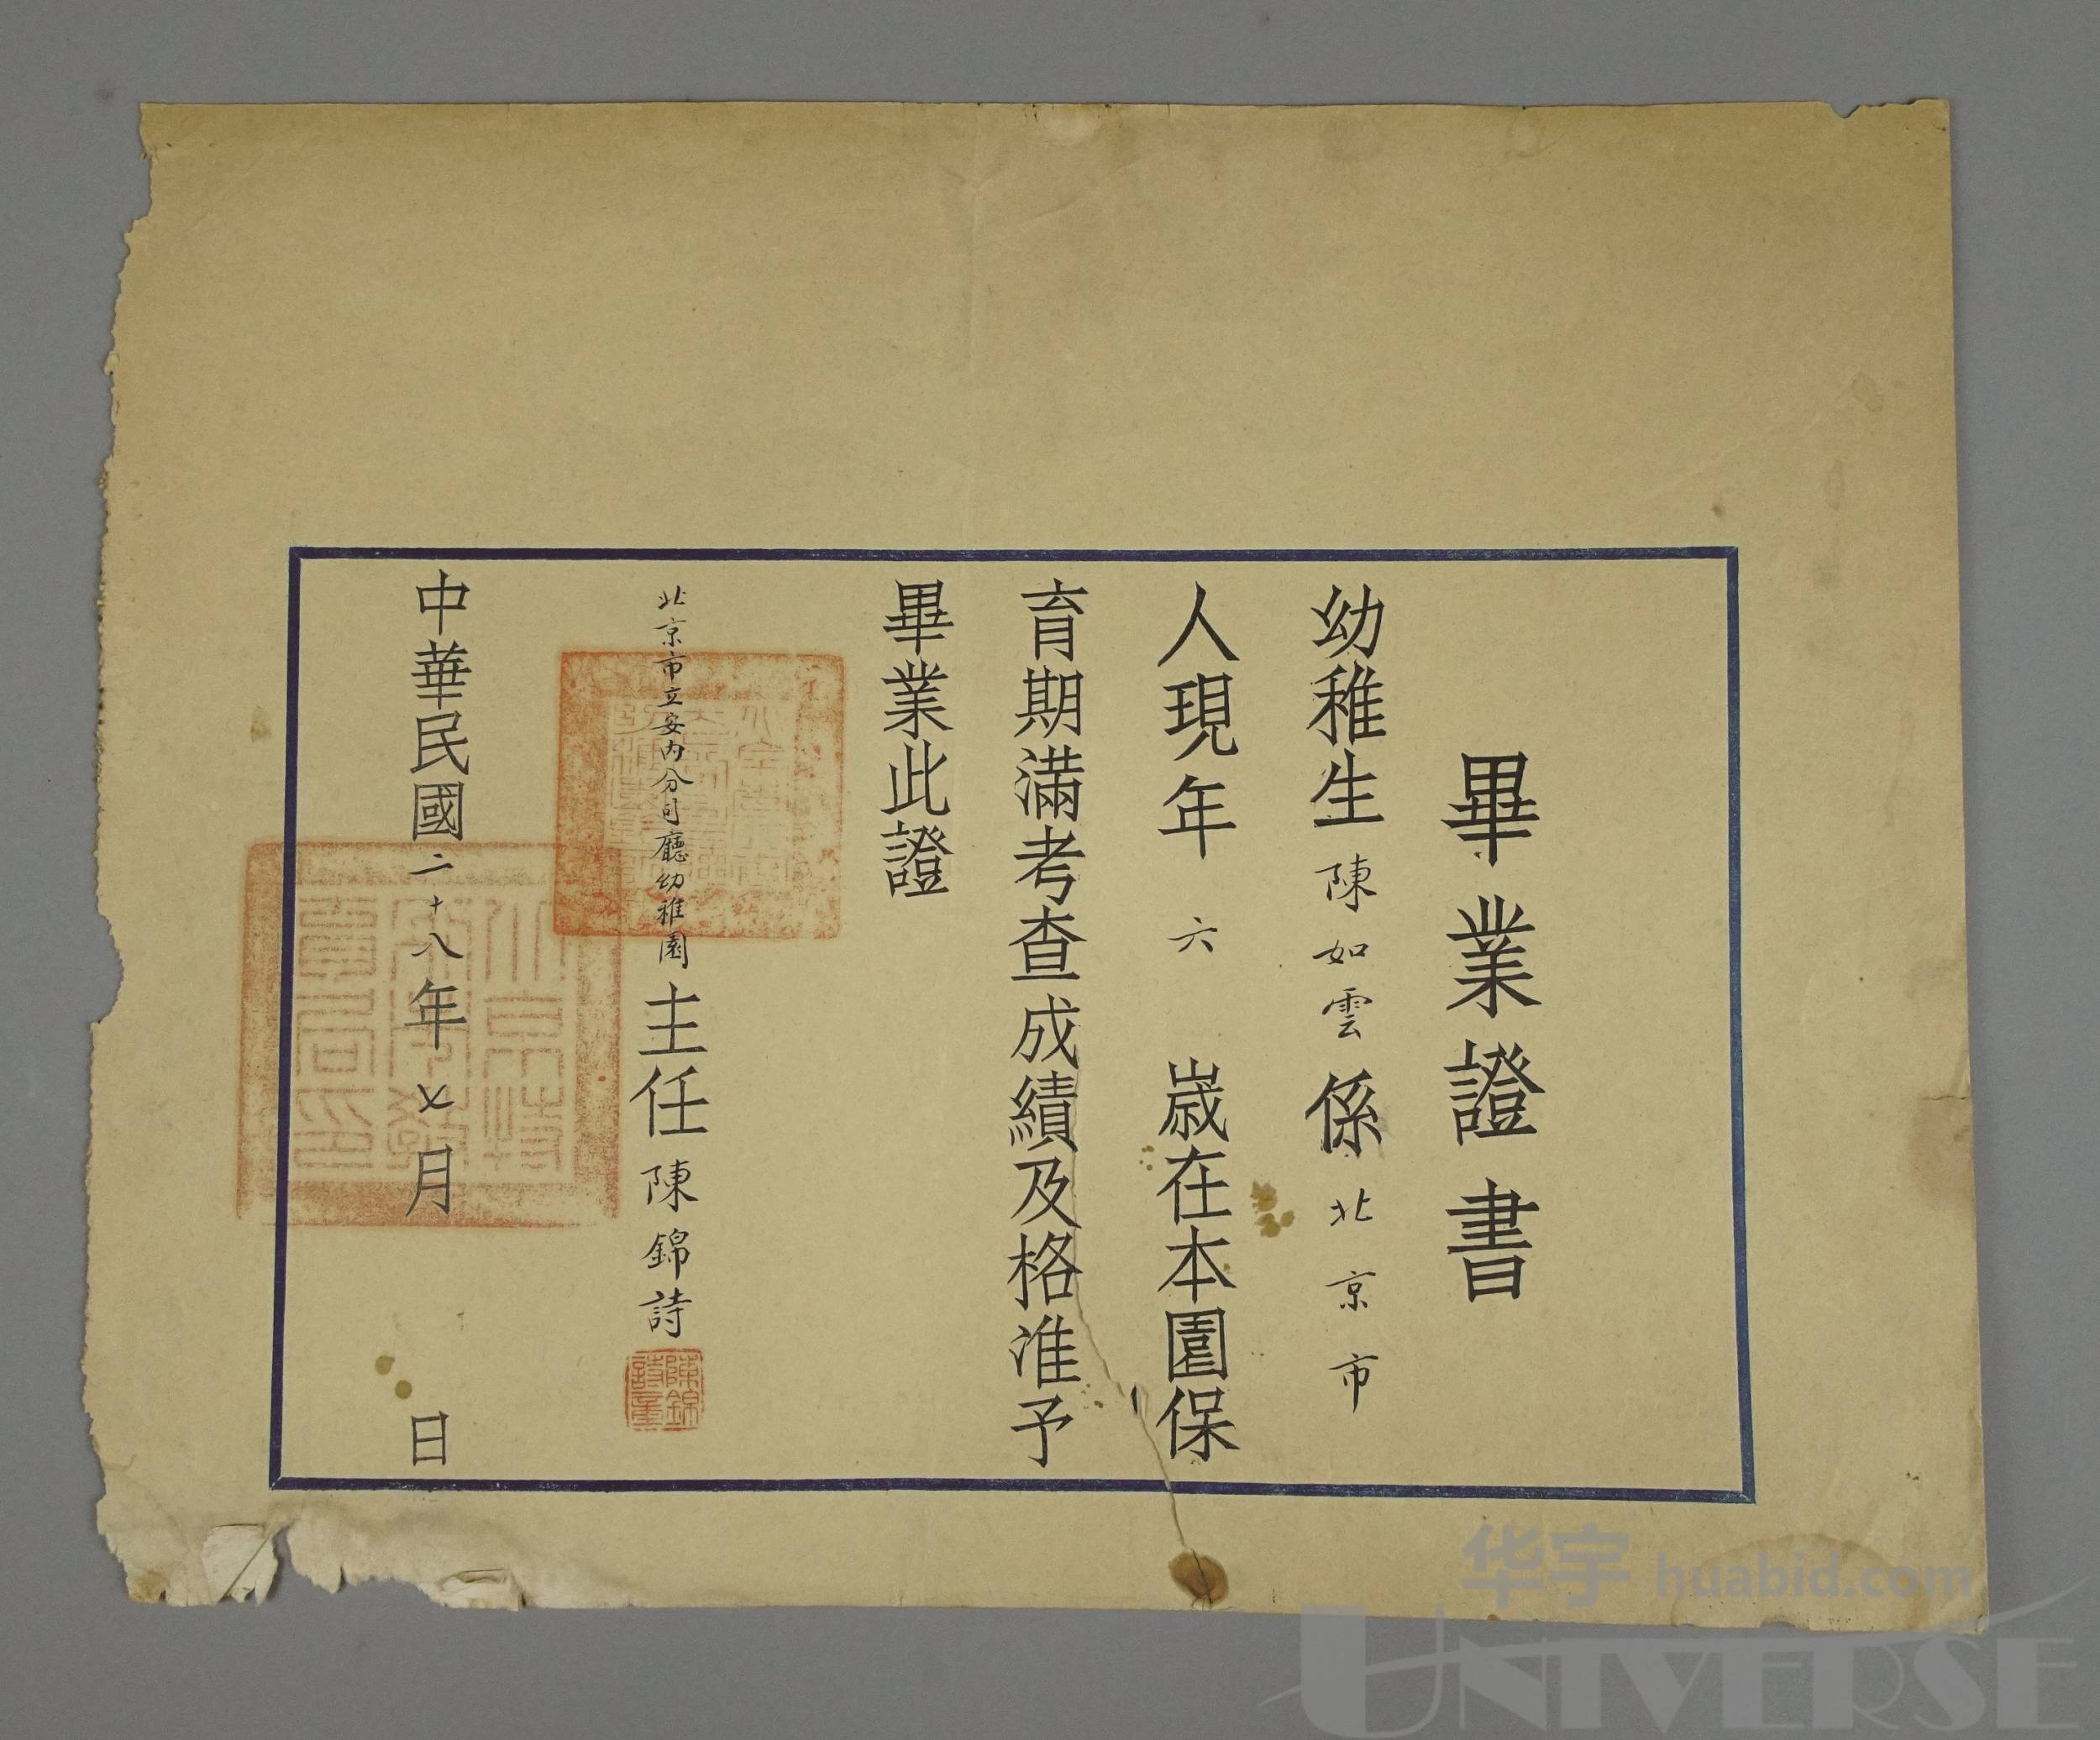 畢業證書
幼稚生陳如雲係北京市
人現年六歲在本園保
育期滿考查成績及格准予
畢業此證
北京市立安內分司廳幼稚園主任陳錦詩
陳錦詩章
中華民國二十八年七月日
北京特
別市教
育局印
华宇 huabid.com
UNIVERSE